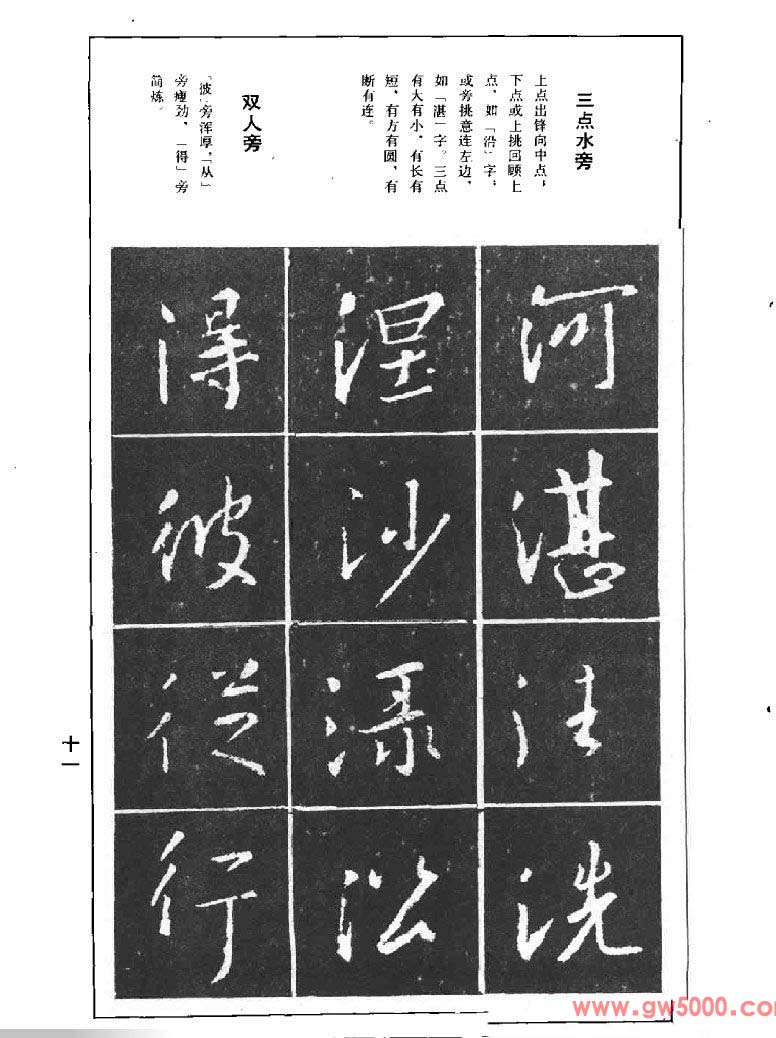 三点水旁
上点出锋向中点，
下点或上挑回顾上
点，如「沿」字，
或旁挑意连左边，
如「湛」字。三点
有大有小，有长有
短，有方有圆，有
断有连。
双人旁
「彼」旁浑厚，「从」
旁瘦劲，「得」旁
简炼。
河
湛
法
洗
涅
沙
瀑
沿
得
彼
從
行
十一
www.gw5000.com